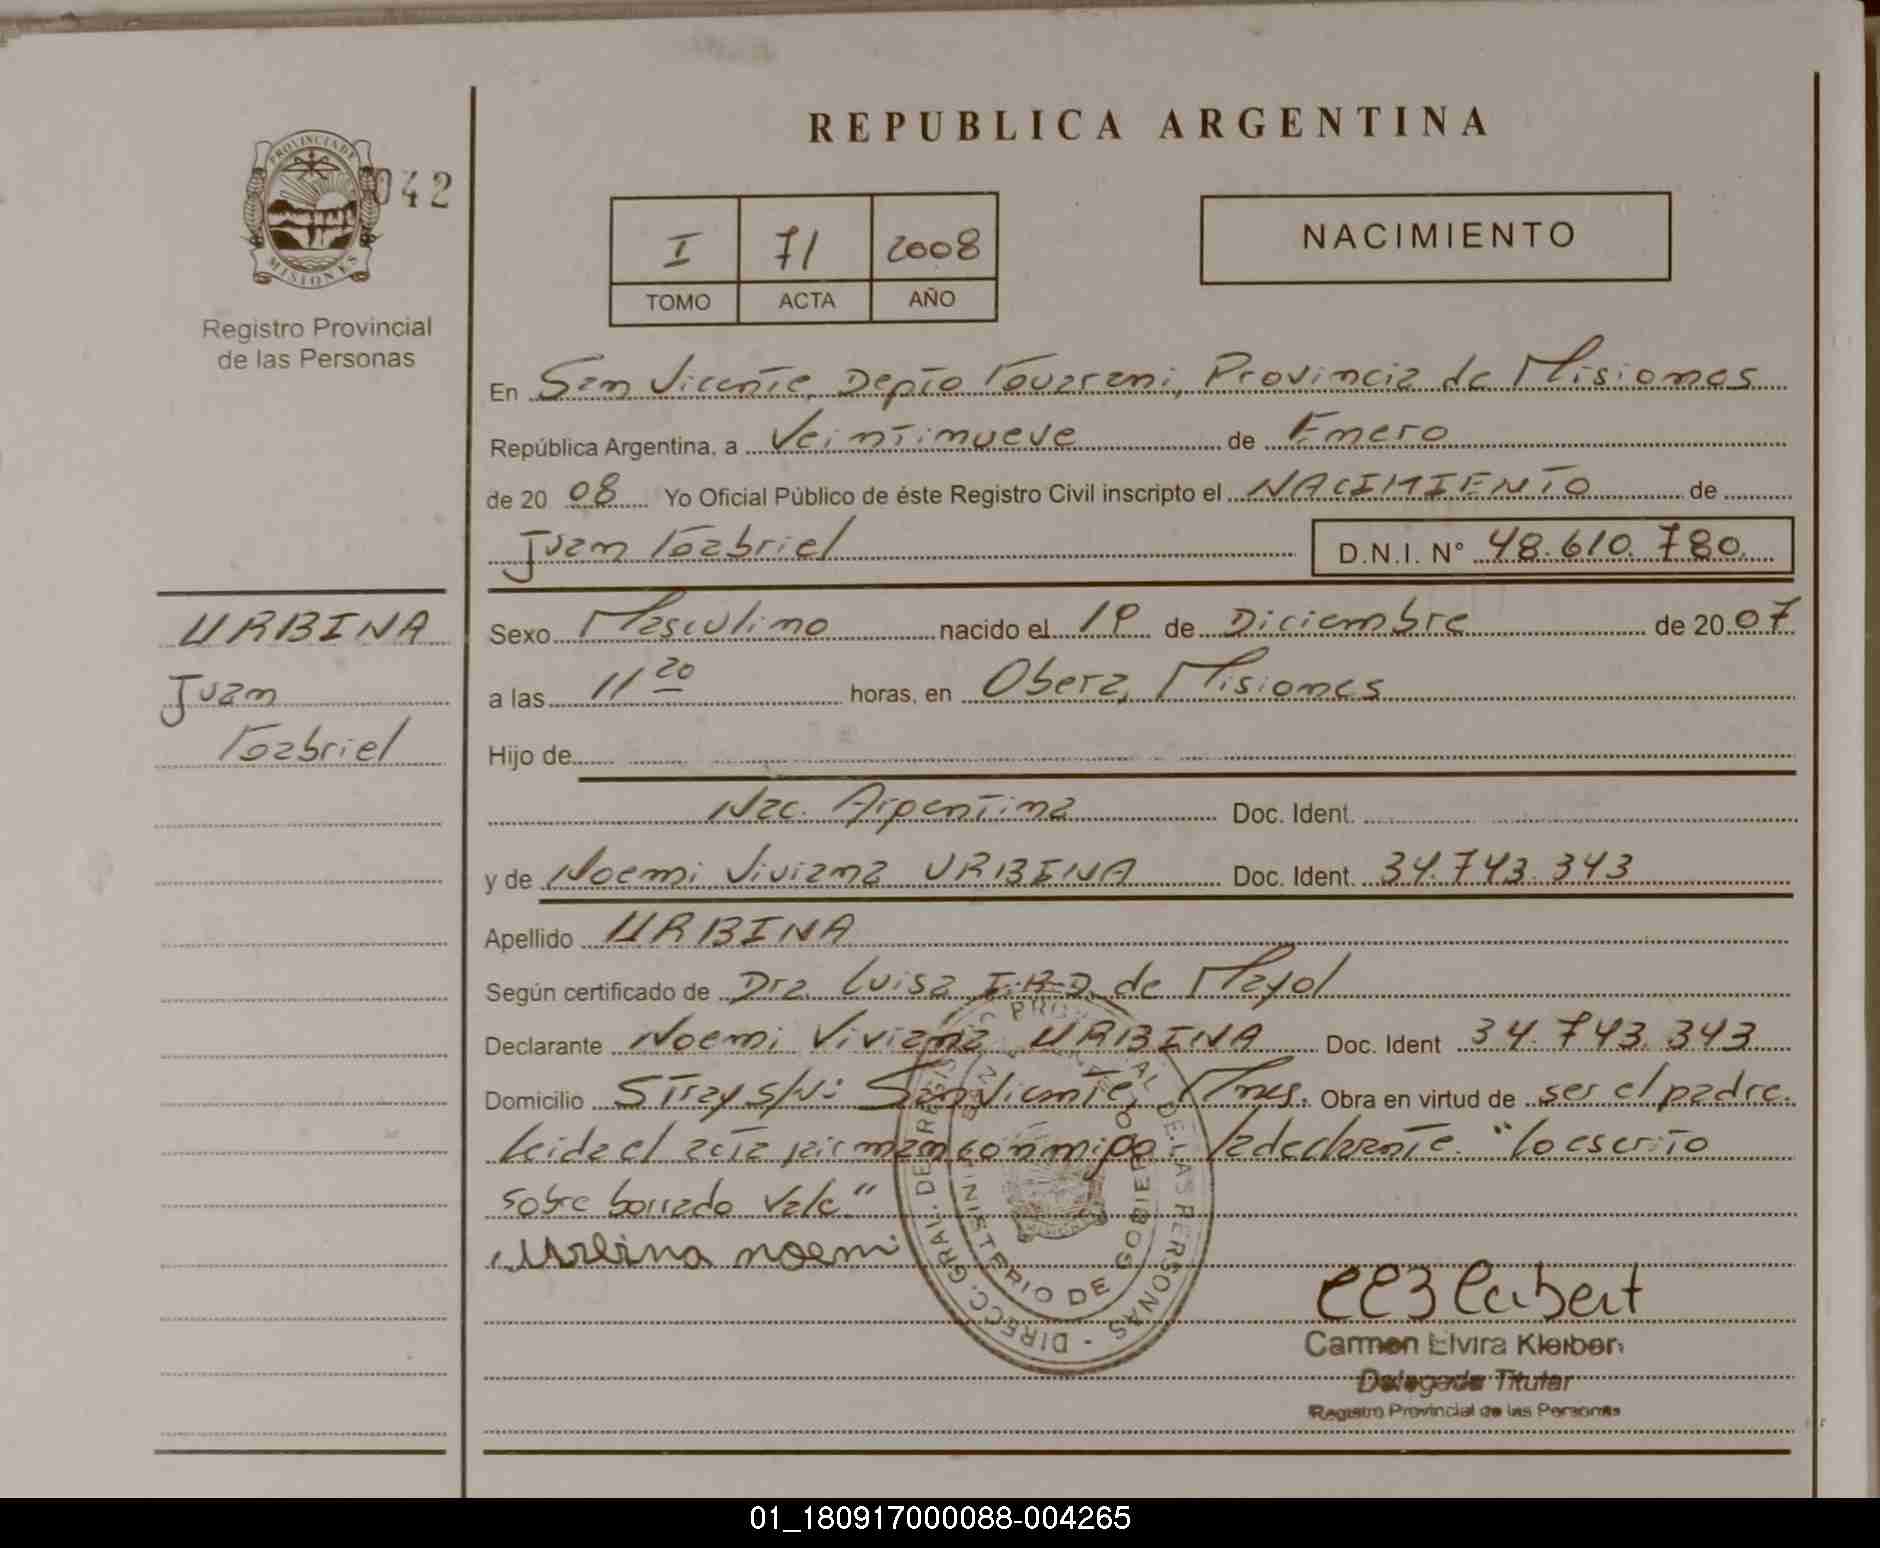 REPUBLICA ARGENTINA
PROVINCIA DE
MISIONES
042
Registro Provincial
de las Personas
I 71 2008
TOMO ACTA AÑO
NACIMIENTO
En San Vicente, Depto Guarani, Provincia de Misiones
República Argentina, a Veintinueve de Enero
de 20 08 Yo Oficial Público de éste Registro Civil inscripto el NACIMIENTO de
Juan Gabriel D.N.I. N° 48.610.780
URBINA
Juan
Gabriel
Sexo Masculino nacido el 19 de Diciembre de 20 07
a las 11 20 horas, en Obera, Misiones
Hijo de
Nac. Argentina Doc. Ident.
y de Noemi Viviana URBINA Doc. Ident. 34.743.343
Apellido URBINA
Según certificado de Dra. Luisa I.B.D. de Mayol
Declarante Noemi Viviana URBINA Doc. Ident 34.743.343
Domicilio Stray s/N: San Vicente, Mnes. Obra en virtud de ser el padre.
Leida el acta firman conmigo: la declarante. "lo escrito
sobre borrado vale"
Urbina noemi
DIRECC. GRAL. DE REGISTRO PROVINCIAL DE LAS PERSONAS
MINISTERIO DE GOBIERNO
Carmen Elvira Kleiber
Delegada Titular
Registro Provincial de las Personas
01_180917000088-004265